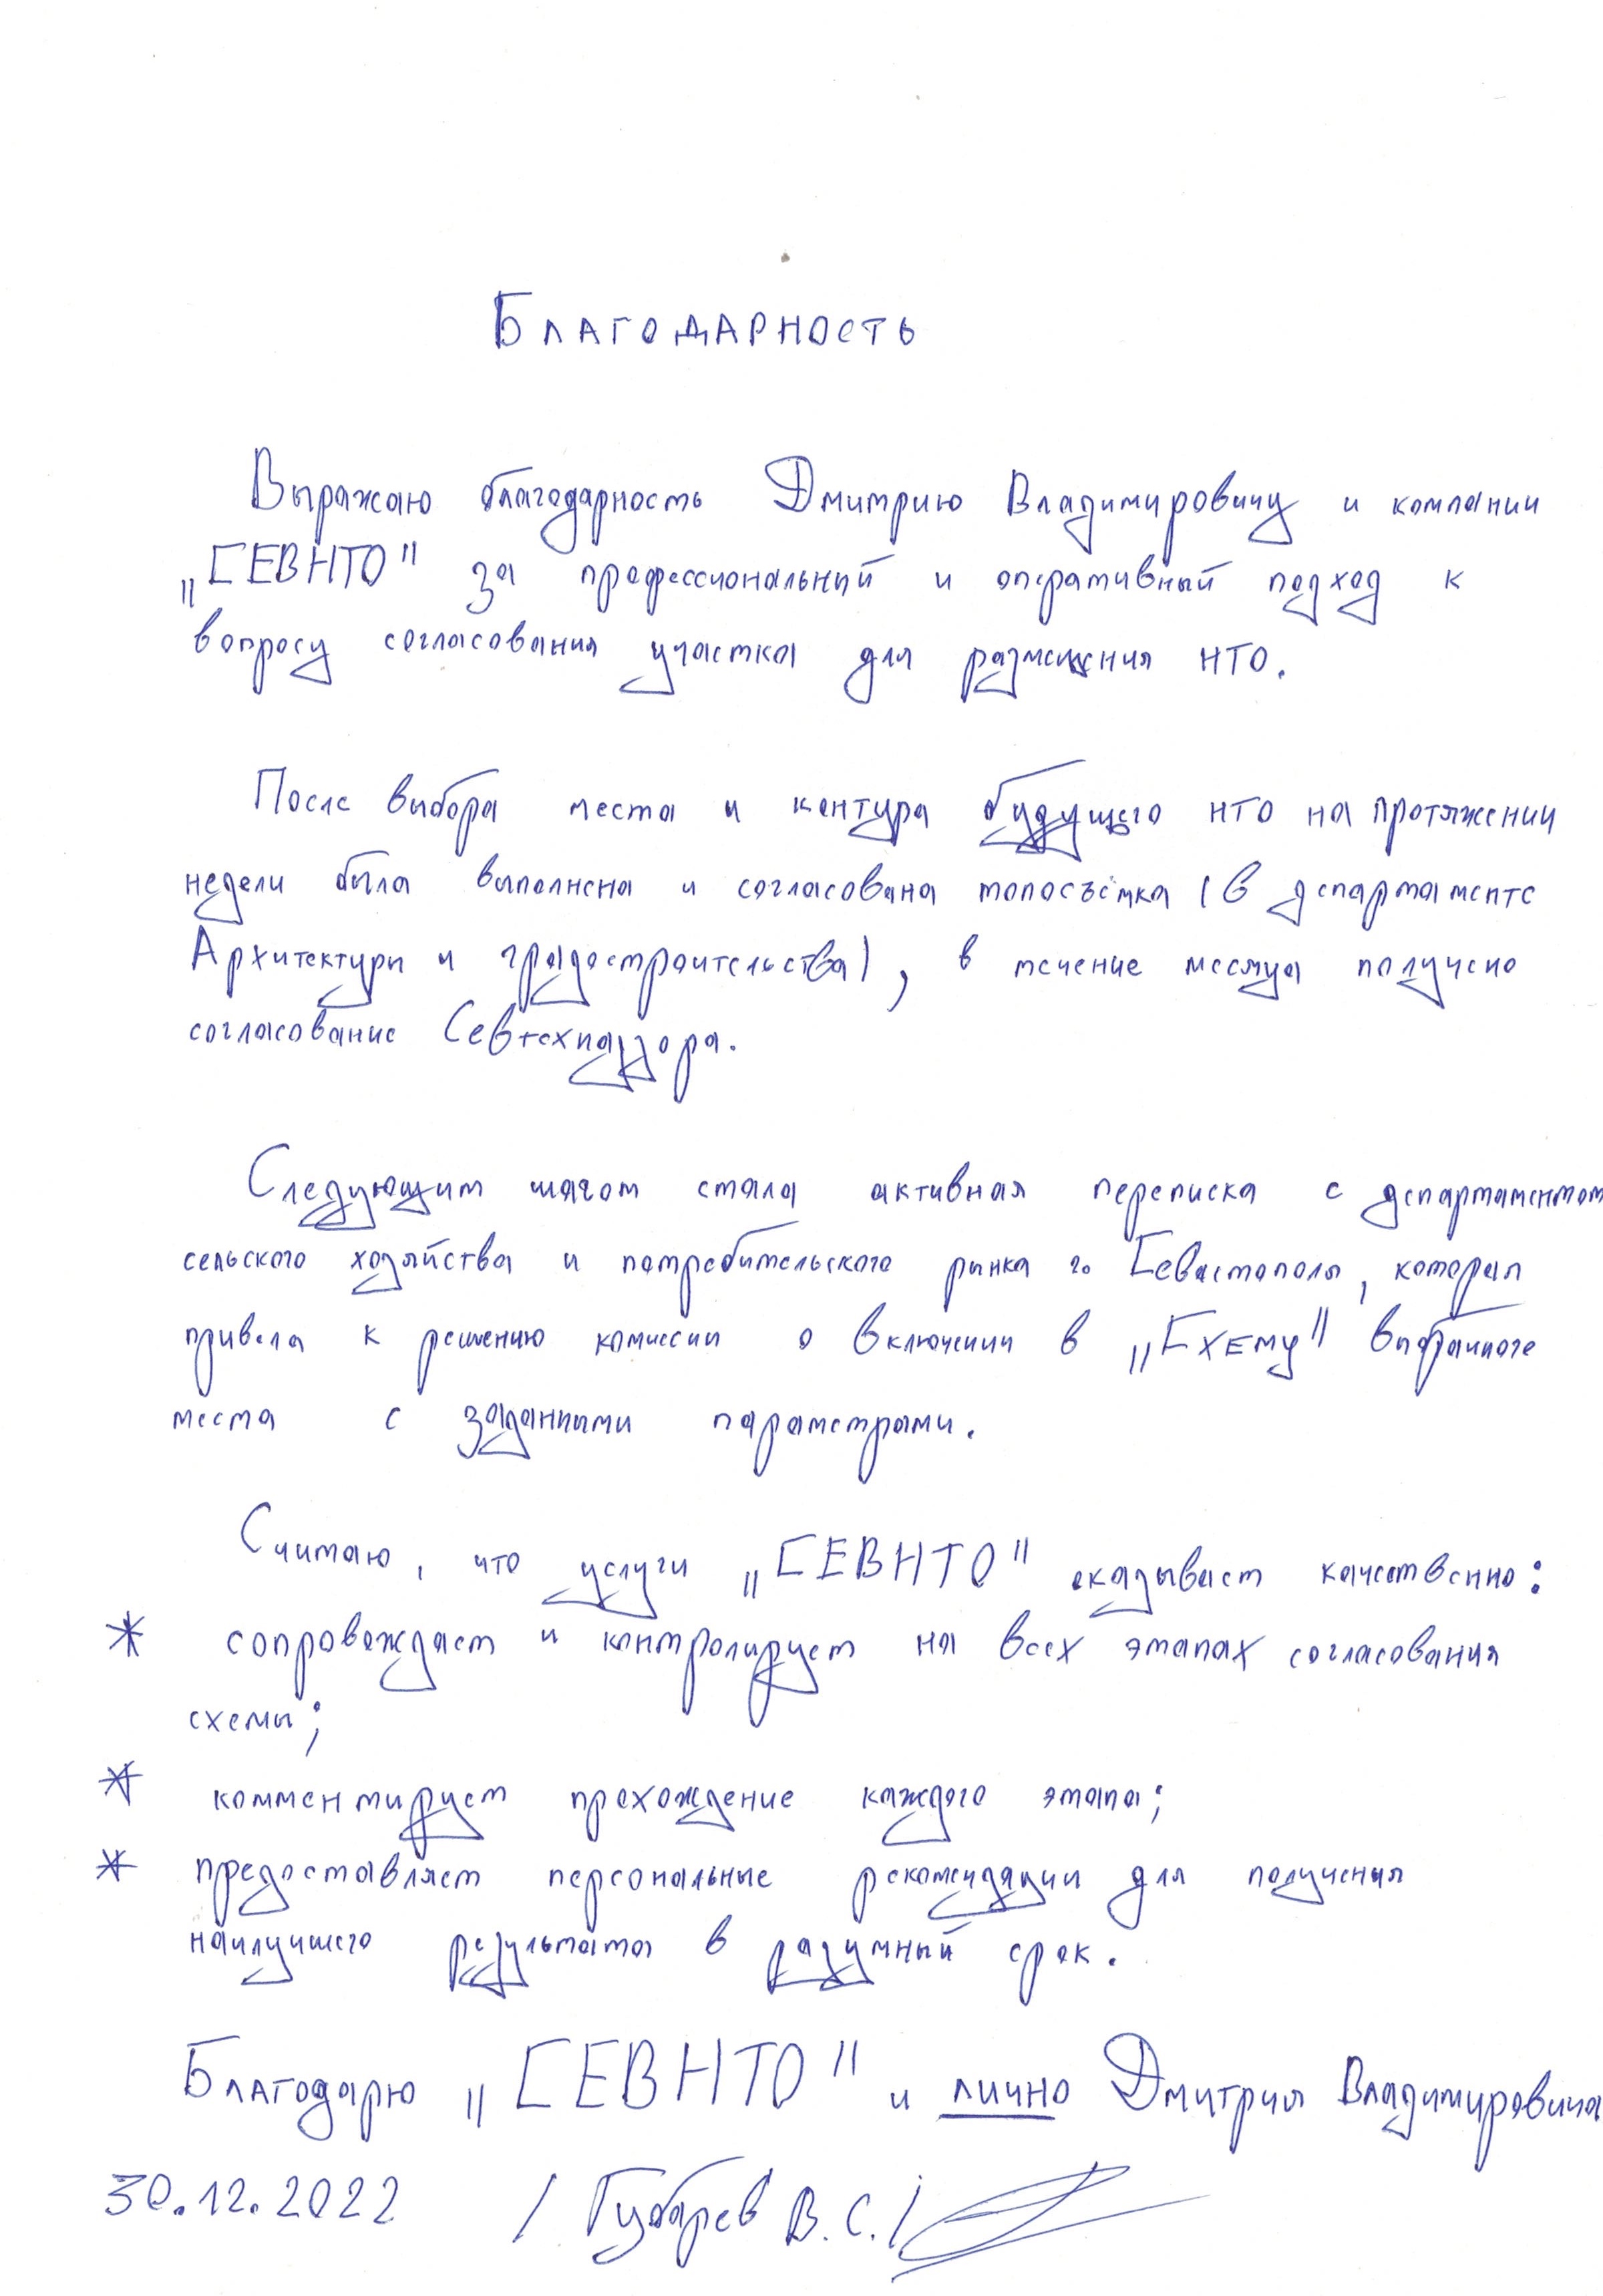 Благодарность
Выражаю благодарность Дмитрию Владимировичу и компании
„СЕВНТО" за профессиональный и оперативный подход к
вопросу согласования участка для размещения НТО.
После выбора места и контура будущего НТО на протяжении
недели была выполнена и согласована топосъёмка (в департаменте
Архитектуры и градостроительства), в течение месяца получено
согласование Севтехнадзора.
Следующим шагом стала активная переписка с департаментом
сельского хозяйства и потребительского рынка г. Севастополя, которая
привела к решению комиссии о включении в „Схему" выбранного
места с заданными параметрами.
Считаю, что услуги „СЕВНТО" оказывает качественно:
* сопровождает и контролирует на всех этапах согласования
схемы;
* комментирует прохождение каждого этапа;
* предоставляет персональные рекомендации для получения
наилучшего результата в разумный срок.
Благодарю „СЕВНТО" и лично Дмитрия Владимировича
30.12.2022 / Губарев В.С. /